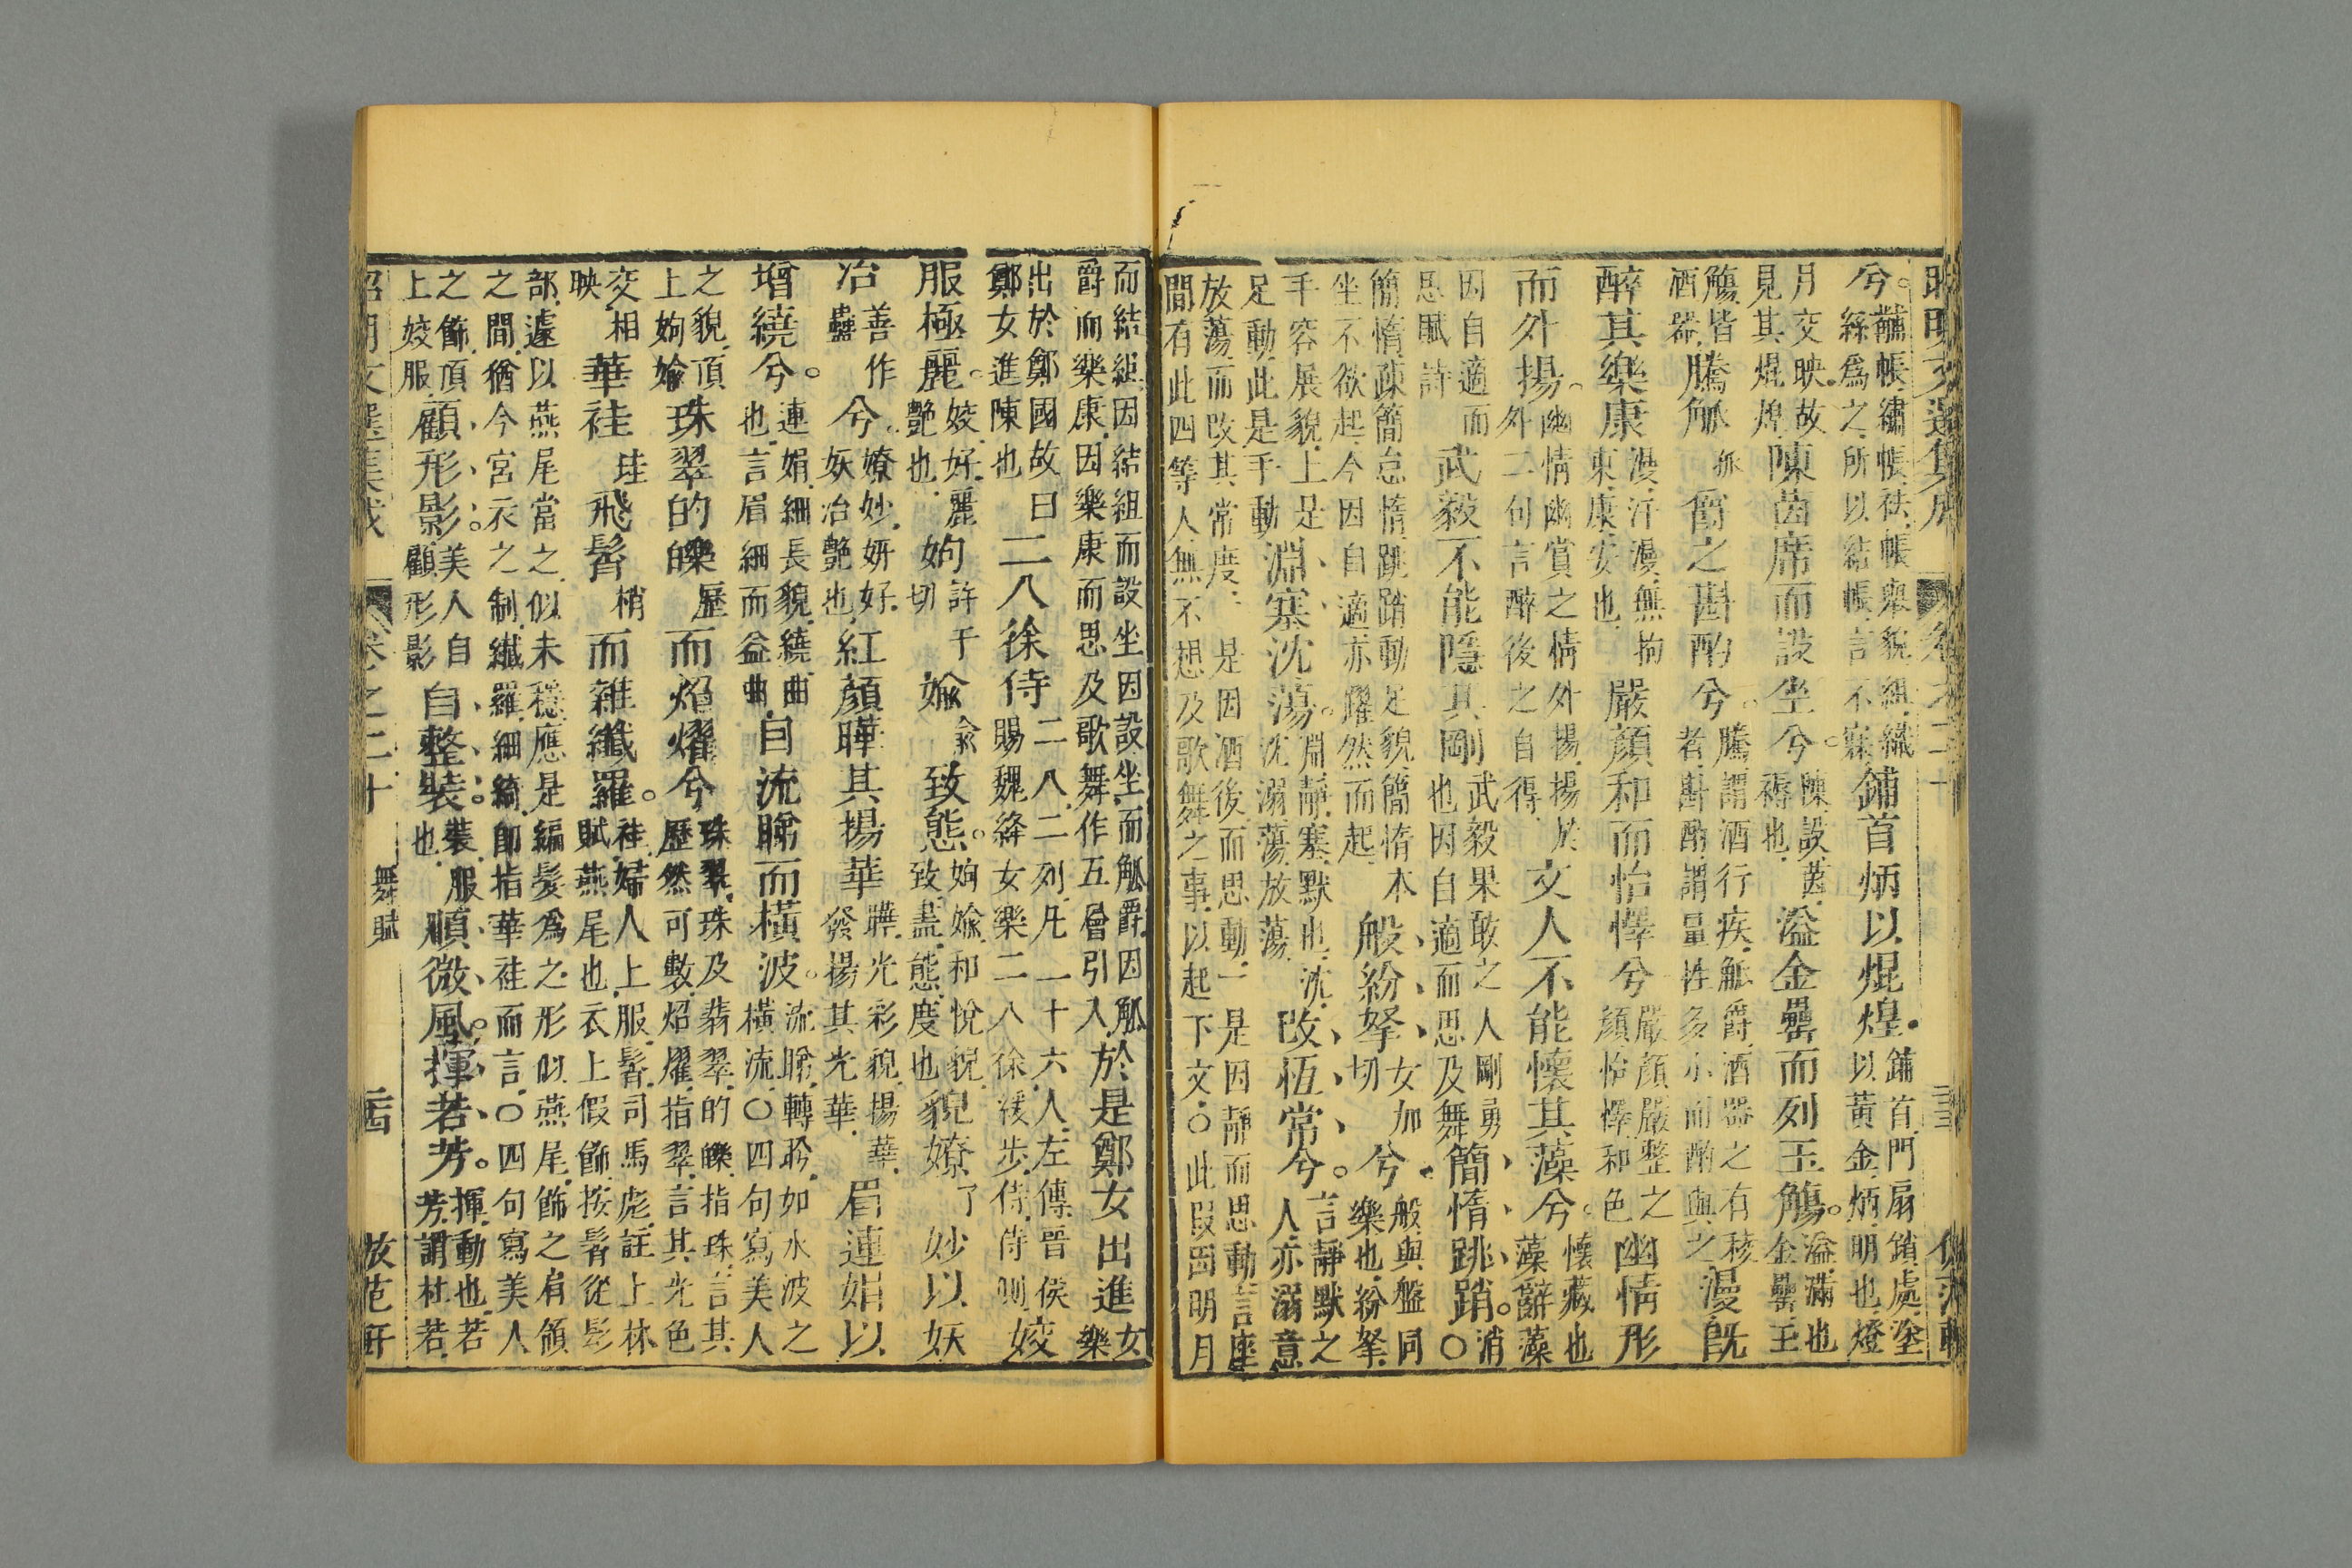 昭明文選集成 卷之二十
兮。黼帳繡帳袪帳舉貌組織
絲爲之所以結帳言不寐鋪首炳以焜煌。鋪首門扇鎖處塗
以黃金炳明也燈
月交映故
見其焜煌陳茵席而設坐兮。陳設茵
褥也溢金罍而列玉觴。溢滿也
金罍玉
觴皆
酒器騰觚爵之斟酌兮。騰謂酒行疾觚爵酒器之有稜
者斟酌謂量性多小而酌與之漫旣
醉其樂康漫汗漫無拘
東康安也嚴顏和而怡懌兮嚴顏嚴整之
顏怡懌和色幽情形
而外揚。幽情幽賞之情外揚揚於
外二句言醉後之自得文人不能懷其藻兮。懷藏也
藻辭藻
因自適而
思賦詩武毅不能隱其剛武毅果敢之人剛勇
也因自適而思及舞簡惰跳踃。消〇
簡惰疎簡怠惰跳踃動足貌簡惰本
坐不欲起今因自適亦躍然而起般紛挐女加
切兮般與盤同
樂也紛挐
手容展貌上是
足動此是手動淵塞沈蕩。淵靜塞默也沈
沈溺蕩放蕩改恆常兮。言靜默之
人亦溺意
放蕩而改其常度 是因酒後而思動一是因靜而思動言座
間有此四等人無不想及歌舞之事以起下文〇此叚因明月
而結組因結組而設坐因設坐而觚爵因觚
爵而樂康因樂康而思及歌舞作五層引入於是鄭女出進女
樂
出於鄭國故曰
鄭女進陳也二八徐侍二八二列凡一十六人左傳晉侯
賜魏絳女樂二八徐緩步侍侍側姣
服極麗。姣好麗
艷也姁許于
切媮俞致態。姁媮和悅貌
致盡態度也貌嫽了妙以妖
冶善作
蠱兮。嫽妙姸好
妖冶艷也紅顏曄其揚華曄光彩貌揚華
發揚其光華眉連娟以
增繞兮。連娟細長貌繞曲
也言眉細而益曲目流睇而橫波。流睇轉盻如水波之
橫流〇四句寫美人
之貌頂
上姁媮珠翠的皪歷而炤燿兮珠翠珠及翡翠的皪指珠言其
歷然可數炤燿指翠言其光色
交相
映華袿珪飛髾梢而雜纖羅。袿婦人上服髾司馬彪註上林
賦燕尾也衣上假飾按髾從髟
部遽以燕尾當之似未穩應是編髮爲之形似燕尾飾之肩領
之間猶今宮衣之制纖羅細綺卽指華袿而言〇四句寫美人
之飾頂
上姣服顧形影。美人自
顧形影自整裝。裝服
也順微風。揮若芳。揮動也若
芳謂杜若
昭明文選集成 卷之二十 舞賦 三四 倣范軒